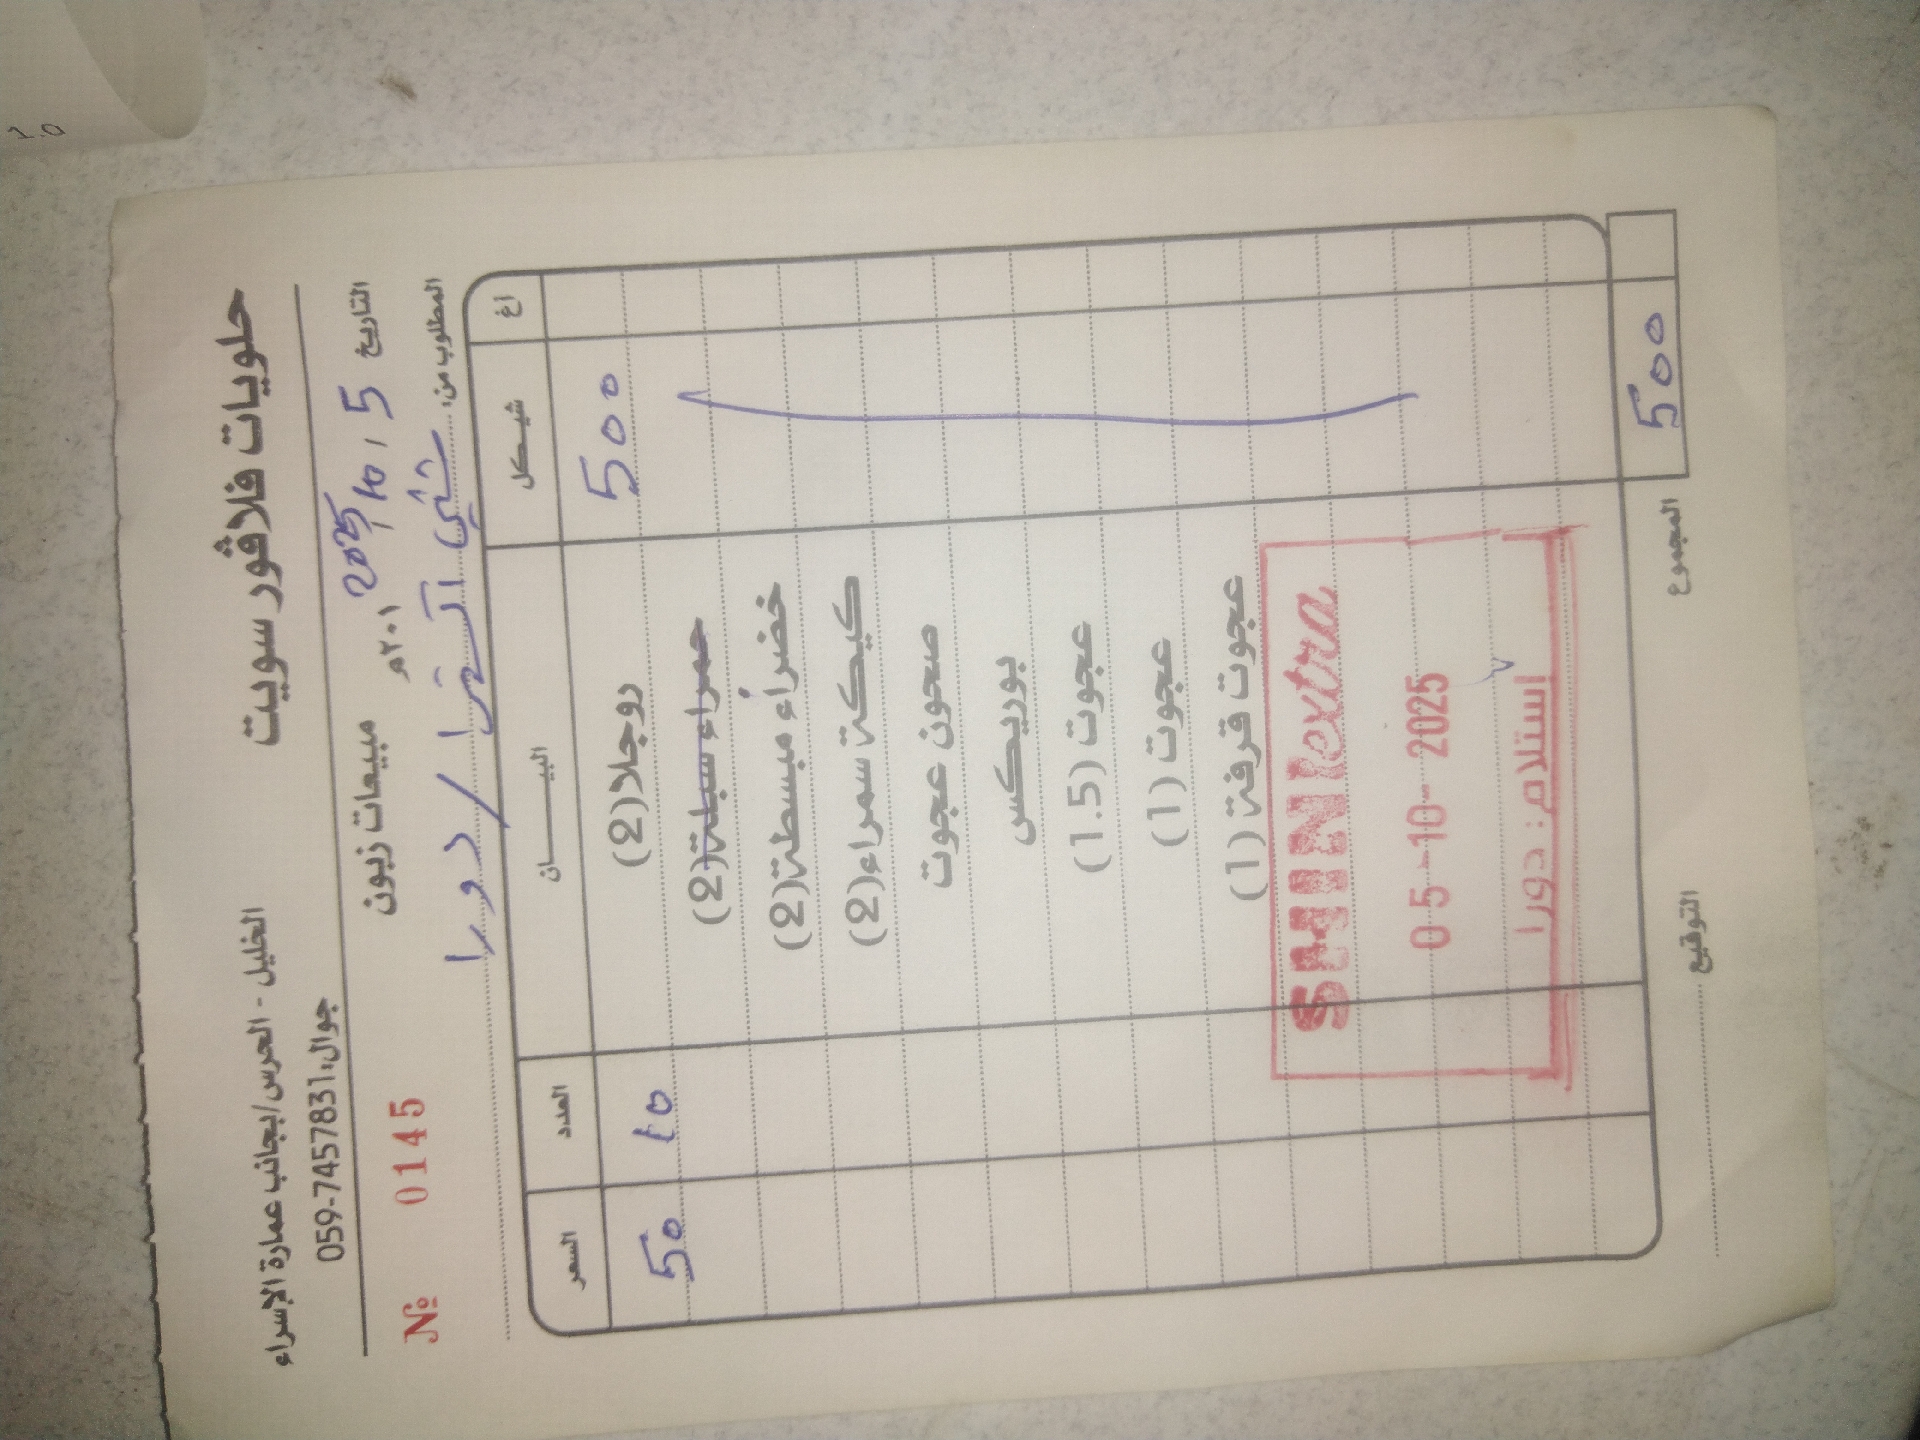 حلويات فلاڤور سويت
الخليل - الحرس/بجانب عمارة الإسراء
جوال: 059-7457831
التاريخ 5 / 10 / 2025 ٢٠١م
مبيعات زبون
№ 0145
المطلوب من: شني اكسترا / دورا
اغ شيكل البيـــــان العدد السعر
500 روجلا (2) 10 50
حمراء سبلة (2)
خضراء مبسطة (2)
كيكة سمراء (2)
صحون عجوت
بوريكس
عجوت (1.5)
عجوت (1)
عجوت قرفة (1)
SHINI extra
05-10-2025
استلام: دورا
500 المجموع
التوقيع
1.0